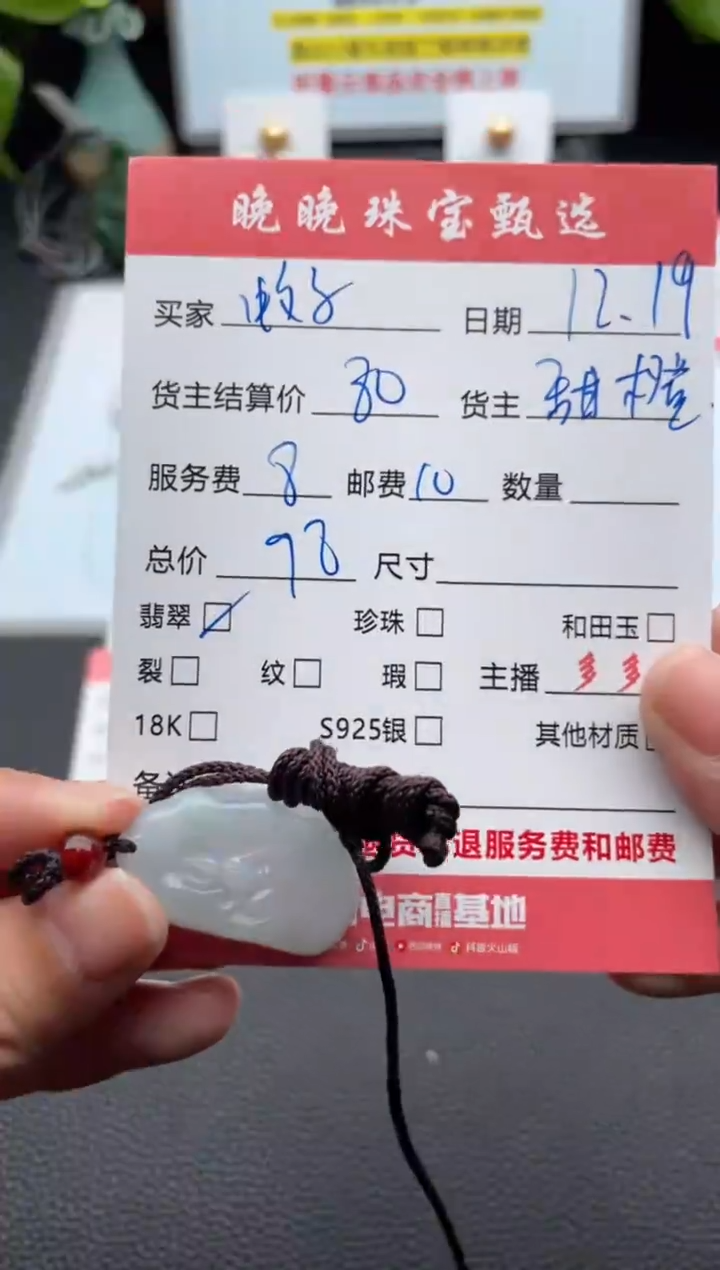 晚晚珠宝甄选
买家 蚊子 日期 12.19
货主结算价 80 货主 甜橙
服务费 8 邮费 10 数量
总价 98 尺寸
翡翠 珍珠 和田玉
裂 纹 瑕 主播 多多
18K S925银 其他材质
备
退服务费和邮费
电商直播基地